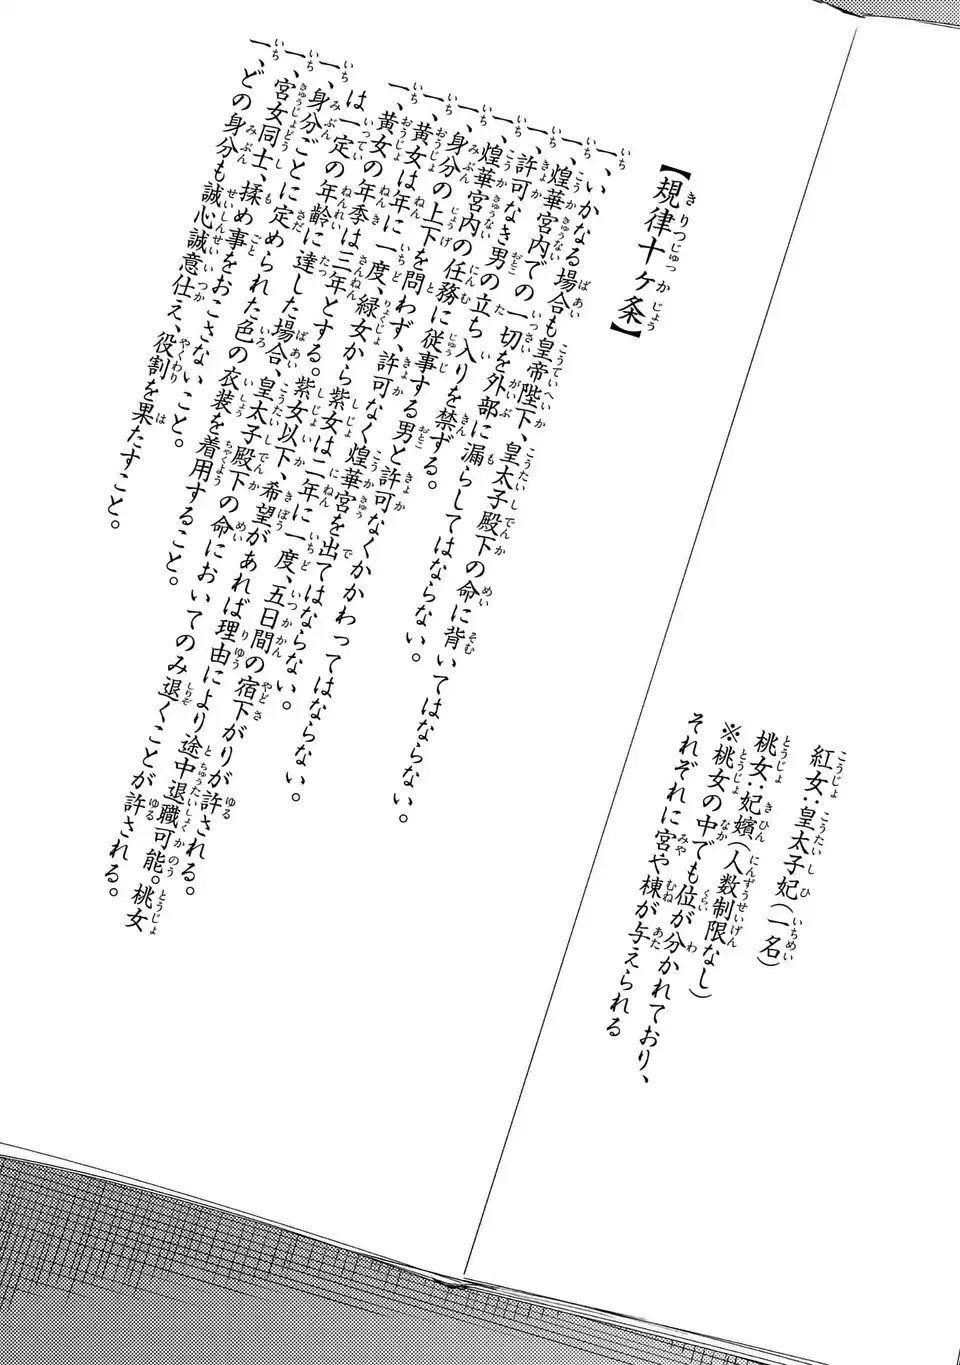 紅女：皇太子妃（一名）
桃女：妃嬪（人数制限なし）
※桃女の中でも位が分かれており、
それぞれに宮や棟が与えられる
【規律十ヶ条】
一、いかなる場合も皇帝陛下、皇太子殿下の命に背いてはならない。
一、煌華宮内での一切を外部に漏らしてはならない。
一、許可なき男の立ち入りを禁ずる。
一、煌華宮内の任務に従事する男と許可なくかかわってはならない。
一、身分の上下を問わず、許可なく煌華宮を出てはならない。
一、黄女は年に一度、緑女から紫女は二年に一度、五日間の宿下がりが許される。
一、黄女の年季は三年とする。紫女以下、希望があれば理由により途中退職可能。桃女
は一定の年齢に達した場合、皇太子殿下の命においてのみ退くことが許される。
一、身分ごとに定められた色の衣装を着用すること。
一、宮女同士、揉め事をおこさないこと。
一、どの身分も誠心誠意仕え、役割を果たすこと。